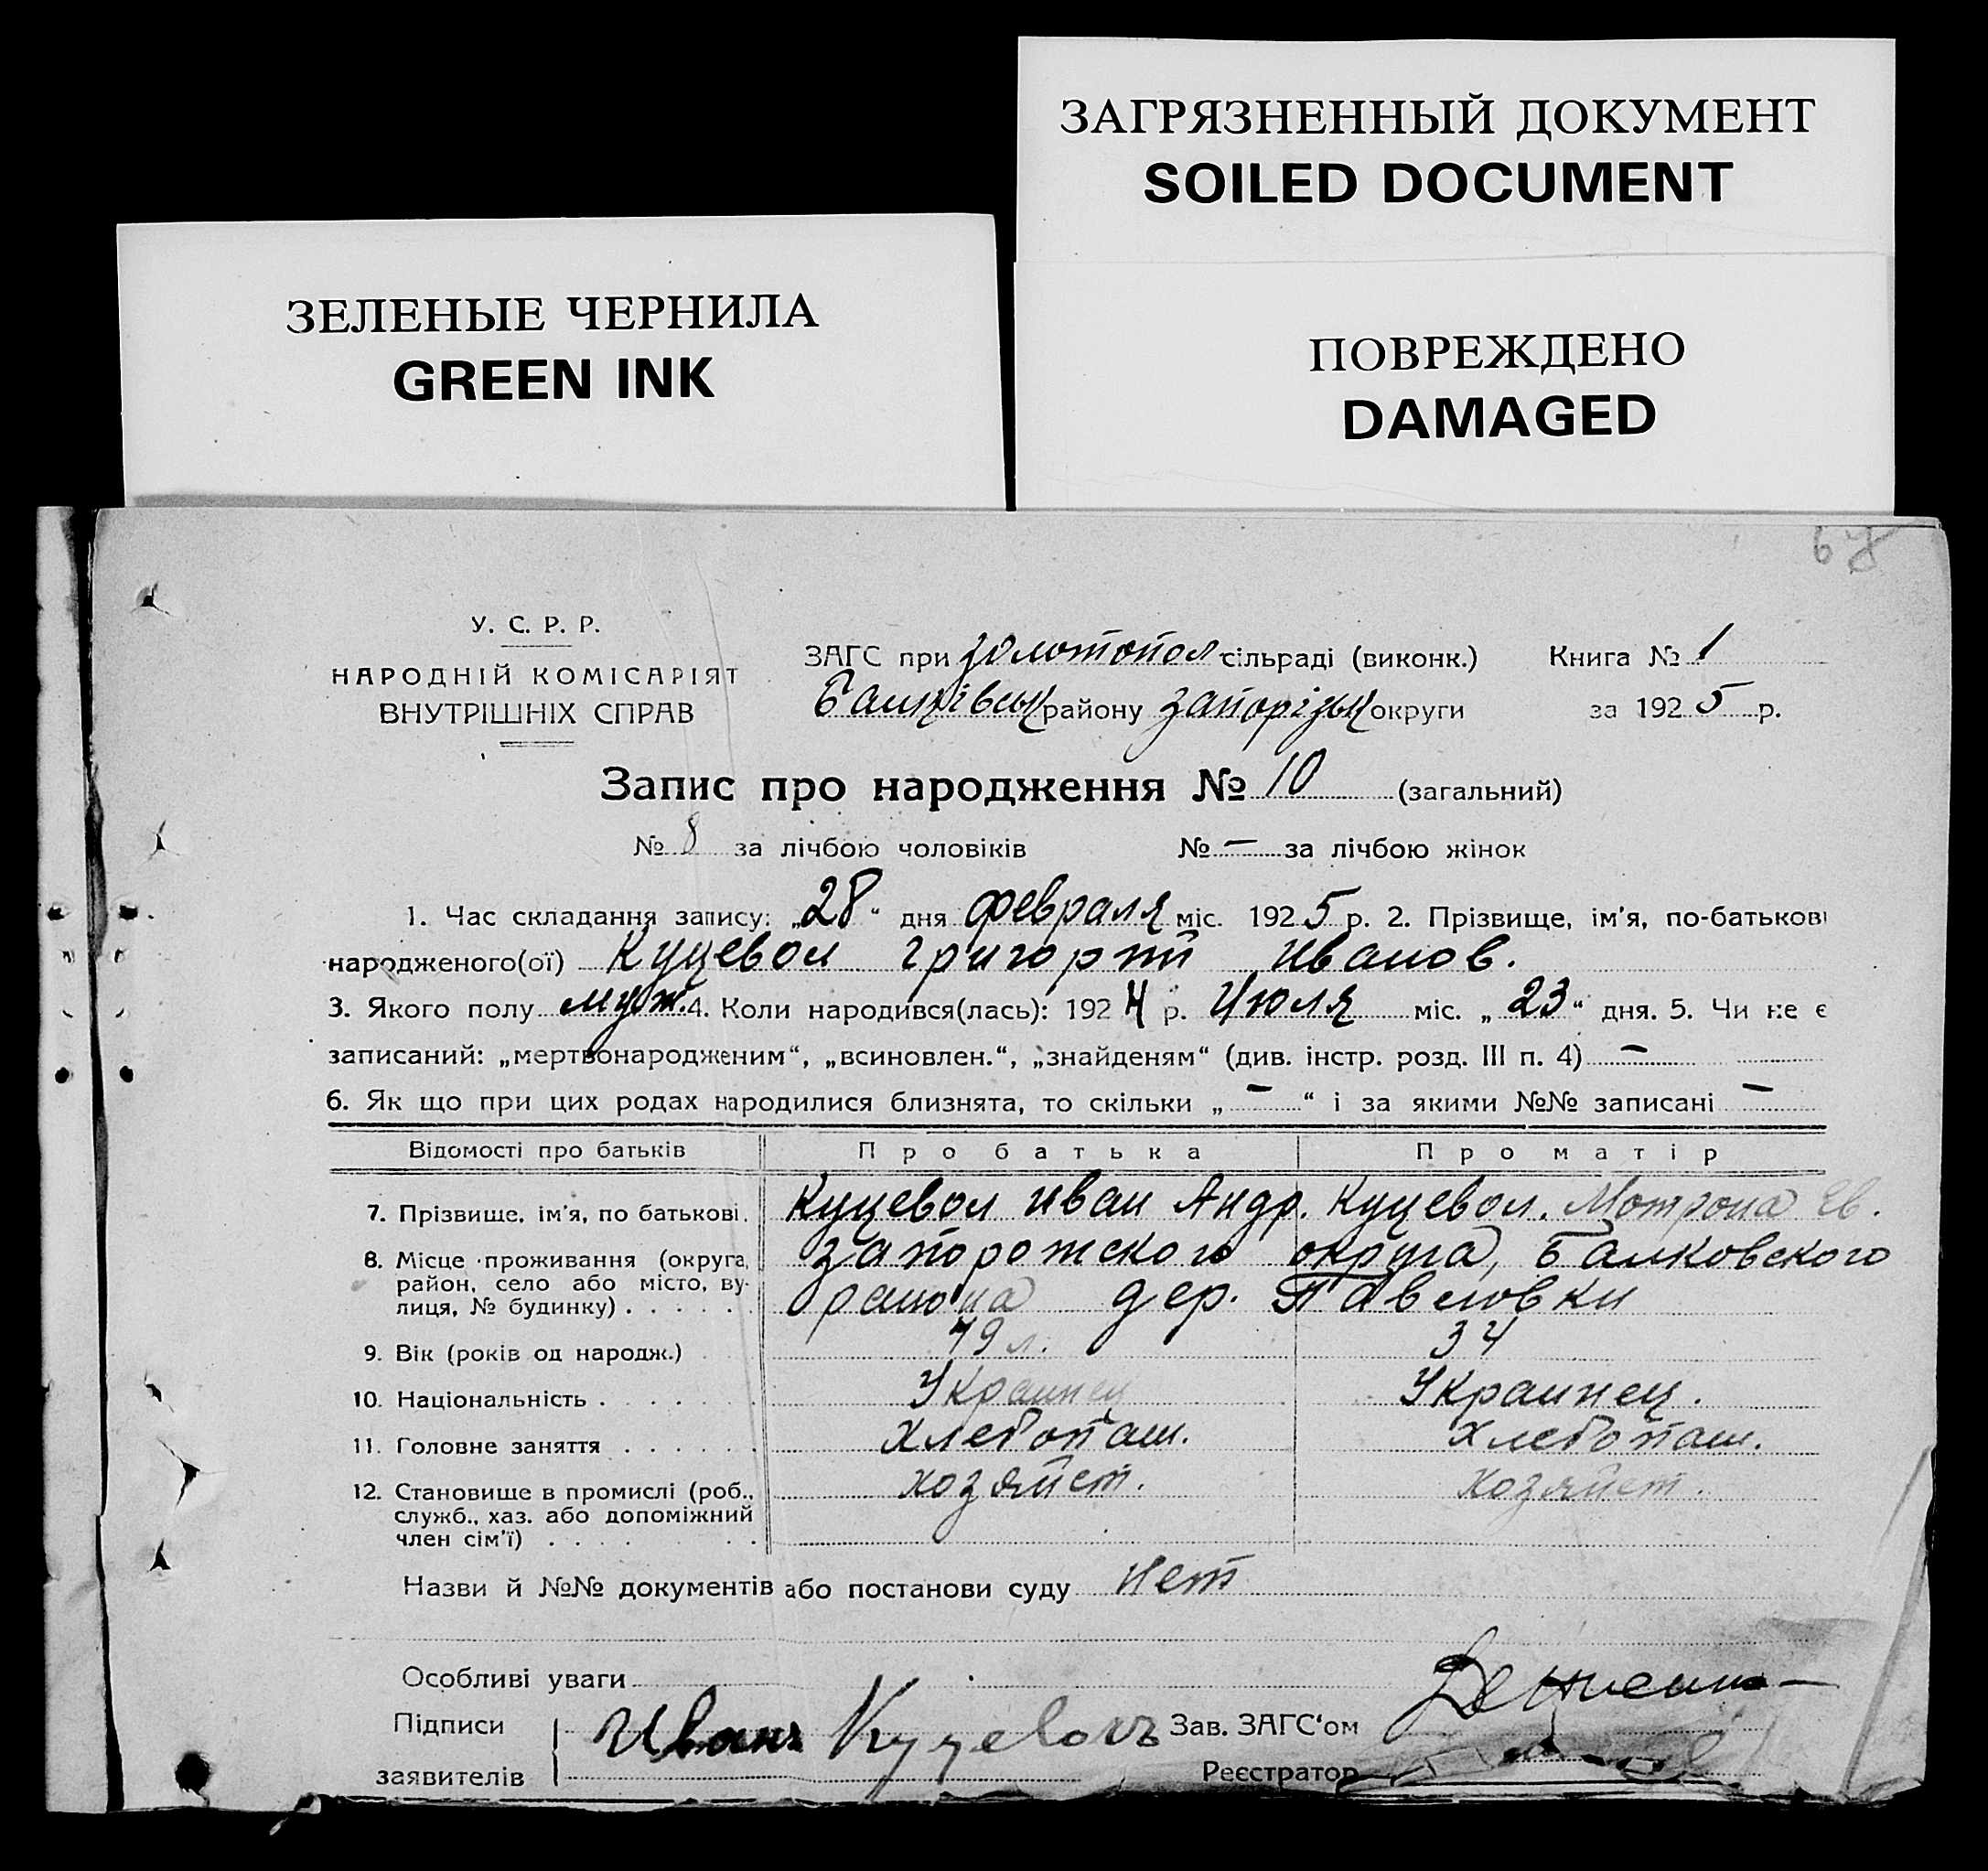 ЗАГРЯЗНЕННЫЙ ДОКУМЕНТ
SOILED DOCUMENT
ЗЕЛЕНЫЕ ЧЕРНИЛА
GREEN INK
ПОВРЕЖДЕНО
DAMAGED
У. С. Р. Р.
НАРОДНІЙ КОМІСАРІЯТ
ВНУТРІШНІХ СПРАВ
ЗАГС при Золотопол сільраді (виконк.) Книга № 1
Балківськ району Запорізьк округи за 1925 р.
Запис про народження № 10 (загальний)
№ 8 за лічбою чоловіків № — за лічбою жінок
1. Час складання запису: „28“ дня февраля міс. 1925 р. 2. Прізвище, ім'я, по-батькові
народженого(ої) Куцевол Григорий Иванов.
3. Якого полу муж. 4. Коли народився(лась): 1924 р. Июля міс. „23“ дня. 5. Чи не є
записаний: „мертвонародженим“, „всиновлен.“, „знайденям“ (див. інстр. розд. III п. 4) —
6. Як що при цих родах народилися близнята, то скільки „—“ і за якими №№ записані —
Відомості про батьків Про батька Про матір
7. Прізвище, ім'я, по батькові. Куцевол Иван Андр. Куцевол. Мотрона Ев.
8. Місце проживання (округа, район, село або місто, вулиця, № будинку) Запорожского округа, Балковского
района дер. Павловки
9. Вік (років од народж.) 49 л. 34
10. Національність Украинец Украинец.
11. Головне заняття Хлебопаш. Хлебопаш.
12. Становище в промислі (роб., хозяйст. хозяйст.
служб., хаз. або допоміжний
член сім'ї)
Назви й №№ документів або постанови суду Нет
Особливі уваги
Підписи Иванъ Куцеволъ Зав. ЗАГС'ом
заявителів Реєстратор